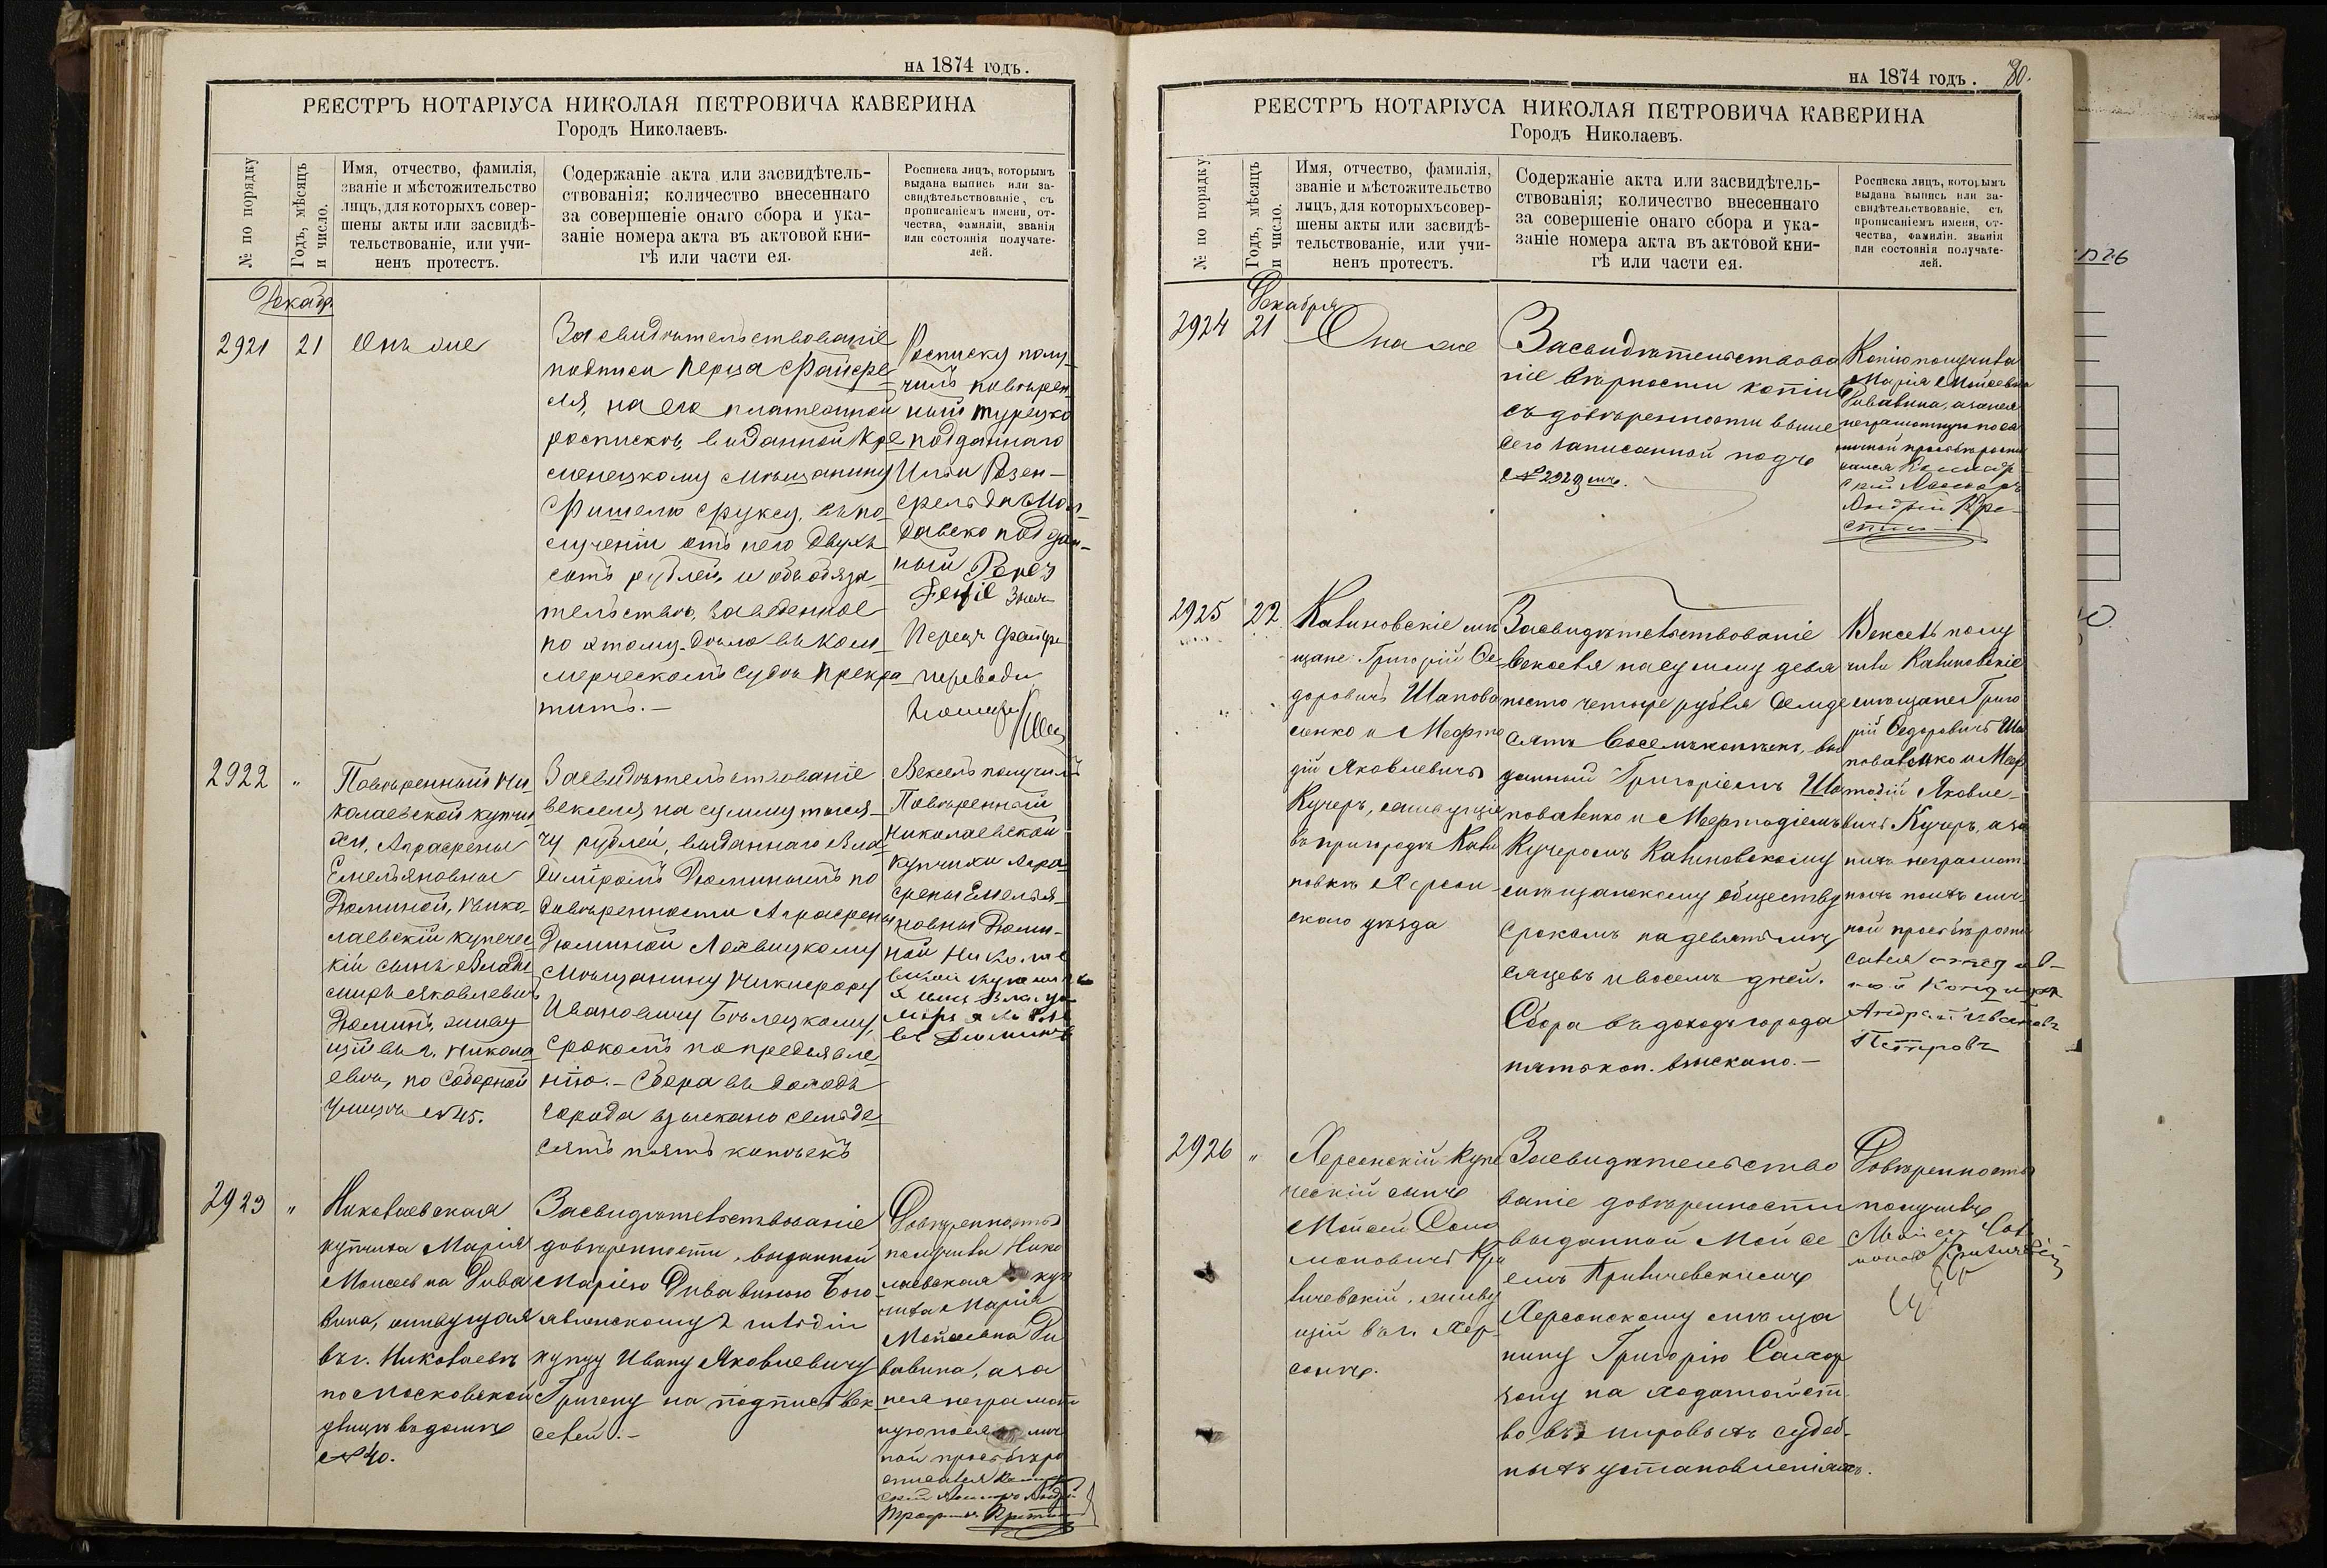 на 1874 годъ.
РЕЕСТРЪ НОТАРІУСА НИКОЛАЯ ПЕТРОВИЧА КАВЕРИНА
Городъ Николаевъ.
№ по порядку
Годъ, мѣсяцъ
и число.
Имя, отчество, фамилія,
званіе и мѣстожительство
лицъ, для которыхъ совер-
шены акты или засвидѣ-
тельствованіе, или учи-
ненъ протестъ.
Содержаніе акта или засвидѣтель-
ствованія; количество внесеннаго
за совершеніе онаго сбора и ука-
заніе номера акта въ актовой кни-
гѣ или части ея.
Росписка лицъ, которымъ
выдана выпись или за-
свидѣтельствованіе, съ
прописаніемъ имени, от-
чества, фамиліи, званія
или состоянія получате-
лей.
Декабр.
2921
21
Онъ же
Засвидѣтельствованіе
подписи Перца Файфе
ля, на его платежной
роспискѣ, выданной Кре
менецкому мѣщанину
Фишелю Фуксу, въ по-
лученіи отъ него двухъ
сотъ рублей и объ обяза
тельствѣ, заведенное
по этому дѣло въ Ком-
мерческомъ судѣ прекра
тить.—
Росписку полу-
чилъ повѣрен-
ный турецко
подданнаго
Ильи Розен-
фельда Мол-
давско поддан-
ный
Перецъ Файфе
переводи
2922
"
Повѣренный Ни-
колаевской купчи
хи, Аграфены
Емельяновны
Дюминой, Нико-
лаевскій купечес
кій сынъ Влади
миръ Яковлевичъ
Дюминъ, живу
щій въ г. Никола
евѣ, по Соборной
улицѣ № 45.
Засвидѣтельствованіе
векселя на сумму тыся-
чу рублей, выданнаго Вла
диміромъ Дюминымъ по
довѣренности Аграфены
Дюминой Лохвицкому
мѣщанину Никифору
Ивановичу Бѣлецкому,
срокомъ по предъявле
нію.— Сбора въ доходъ
города взыскано семьде
сятъ пять копѣекъ
Вексель получилъ
Повѣренный
Николаевской
купчихи Агра-
фены Емелья-
новны Дюми-
ной Николае
вской купчес
й сынъ Влади
міръ Яковл
въ Дюминъ
2923
"
Николаевская
купчиха Марія
Моисеевна Дива
вина, живущая
въ г. Николаевѣ
по Московской
улицѣ въ домѣ
№ 40.
Засвидѣтельствованіе
довѣренности, выданной
Маріею Дивавиною Бого
явленскому 2 гильдіи
купцу Ивану Яковлевичу
Гричену на подпись век-
селей.—
Довѣренность
получила Нико
лаевская куп
чиха Марія
Мойсеевна Ди
вавина, а за
нея неграмот
ную по ея лич
ной просьбѣ ро
списался
на 1874 годъ.
80.
РЕЕСТРЪ НОТАРІУСА НИКОЛАЯ ПЕТРОВИЧА КАВЕРИНА
Городъ Николаевъ.
№ по порядку
Годъ, мѣсяцъ
и число.
Имя, отчество, фамилія,
званіе и мѣстожительство
лицъ, для которыхъ совер-
шены акты или засвидѣ-
тельствованіе, или учи-
ненъ протестъ.
Содержаніе акта или засвидѣтель-
ствованія; количество внесеннаго
за совершеніе онаго сбора и ука-
заніе номера акта въ актовой кни-
гѣ или части ея.
Росписка лицъ, которымъ
выдана выпись или за-
свидѣтельствованіе, съ
прописаніемъ имени, от-
чества, фамиліи, званія
или состоянія получате-
лей.
Декабря
2924
21
Она же
Засвидѣтельствова
ніе вѣрности копіи
съ довѣренности выше
сего записанной подъ
№ 2923мъ.
Копію получила
Марія Мойсеевна
Дивавина, а за нея
неграмотную по ея
личной просьбѣ роспи
сался
2925
22
Калиновскіе мѣ
щане: Григорій Ѳе-
доровичъ Шапова
ленко и Мефо
дій Яковлевичъ
Кучеръ, живущіе
въ пригородѣ Кали
новкѣ Херсон-
скаго уѣзда
Засвидѣтельствованіе
векселя на сумму девя
носто четыре рубля семьде
сятъ восемь копѣекъ, вы
данный Григоріемъ Ша
поваленко и Мефодіемъ
Кучеромъ Калиновскому
мѣщанскому обществу
срокомъ на девять мѣ
сяцевъ и восемь дней.
Сбора въ доходъ города
пять коп. взыскано.—
Вексель полу
чили Калиновскіе
мѣщане Григо
рій Ѳедоровичъ Ша
поваленко и Меѳ
одій Яковле-
вичъ Кучеръ, а за
нихъ неграмот
ныхъ по ихъ лич
ной просьбѣ роспи
сался
Андрей Ивановъ
Петровъ
2926
"
Херсонскій купе
ческій сынъ
Мойсей Соло
моновичъ Кри
личевскій, живу
щій въ г. Хер-
сонѣ.
Засвидѣтельство
ваніе довѣренности
выданной Мойсе
емъ Криличевскимъ
Херсонскому мѣща
нину Григорію
на ходатайст-
во въ мировыхъ судеб-
ныхъ установленіяхъ.
Довѣренность
получилъ
Мойсей Сол